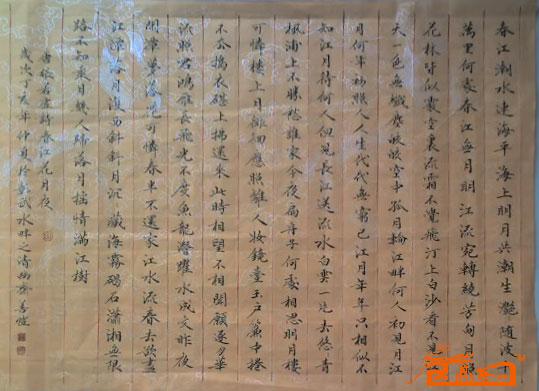 春江潮水連海平海上明月共潮生灔隨波千
萬里何處春江無月明江流宛轉繞芳甸月照
花林皆似霰空裏流霜不覺飛汀上白沙看不見江
天一色無纖塵皎皎空中孤月輪江畔何人初見月江
月何年初照人人生代代無窮已江月年年只相似不
知江月待何人但見長江送流水白雲一片去悠青
楓浦上不勝愁誰家今夜扁舟子何處相思明月樓
可憐樓上月徘徊應照離人妝鏡臺玉戶簾中捲
不去搗衣砧上拂還來此時相望不相聞願逐月華
流照君鴻雁長飛光不度魚龍潛躍水成文昨夜
閒潭夢落花可憐春半不還家江水流春去欲盡
江潭落月復西斜斜月沉藏海霧碣石瀟湘無限
路不知乘月幾人歸落月搖情滿江樹
書張若虛詩春江花月夜
歲次丁亥年仲月於武水畔之清幽齋善